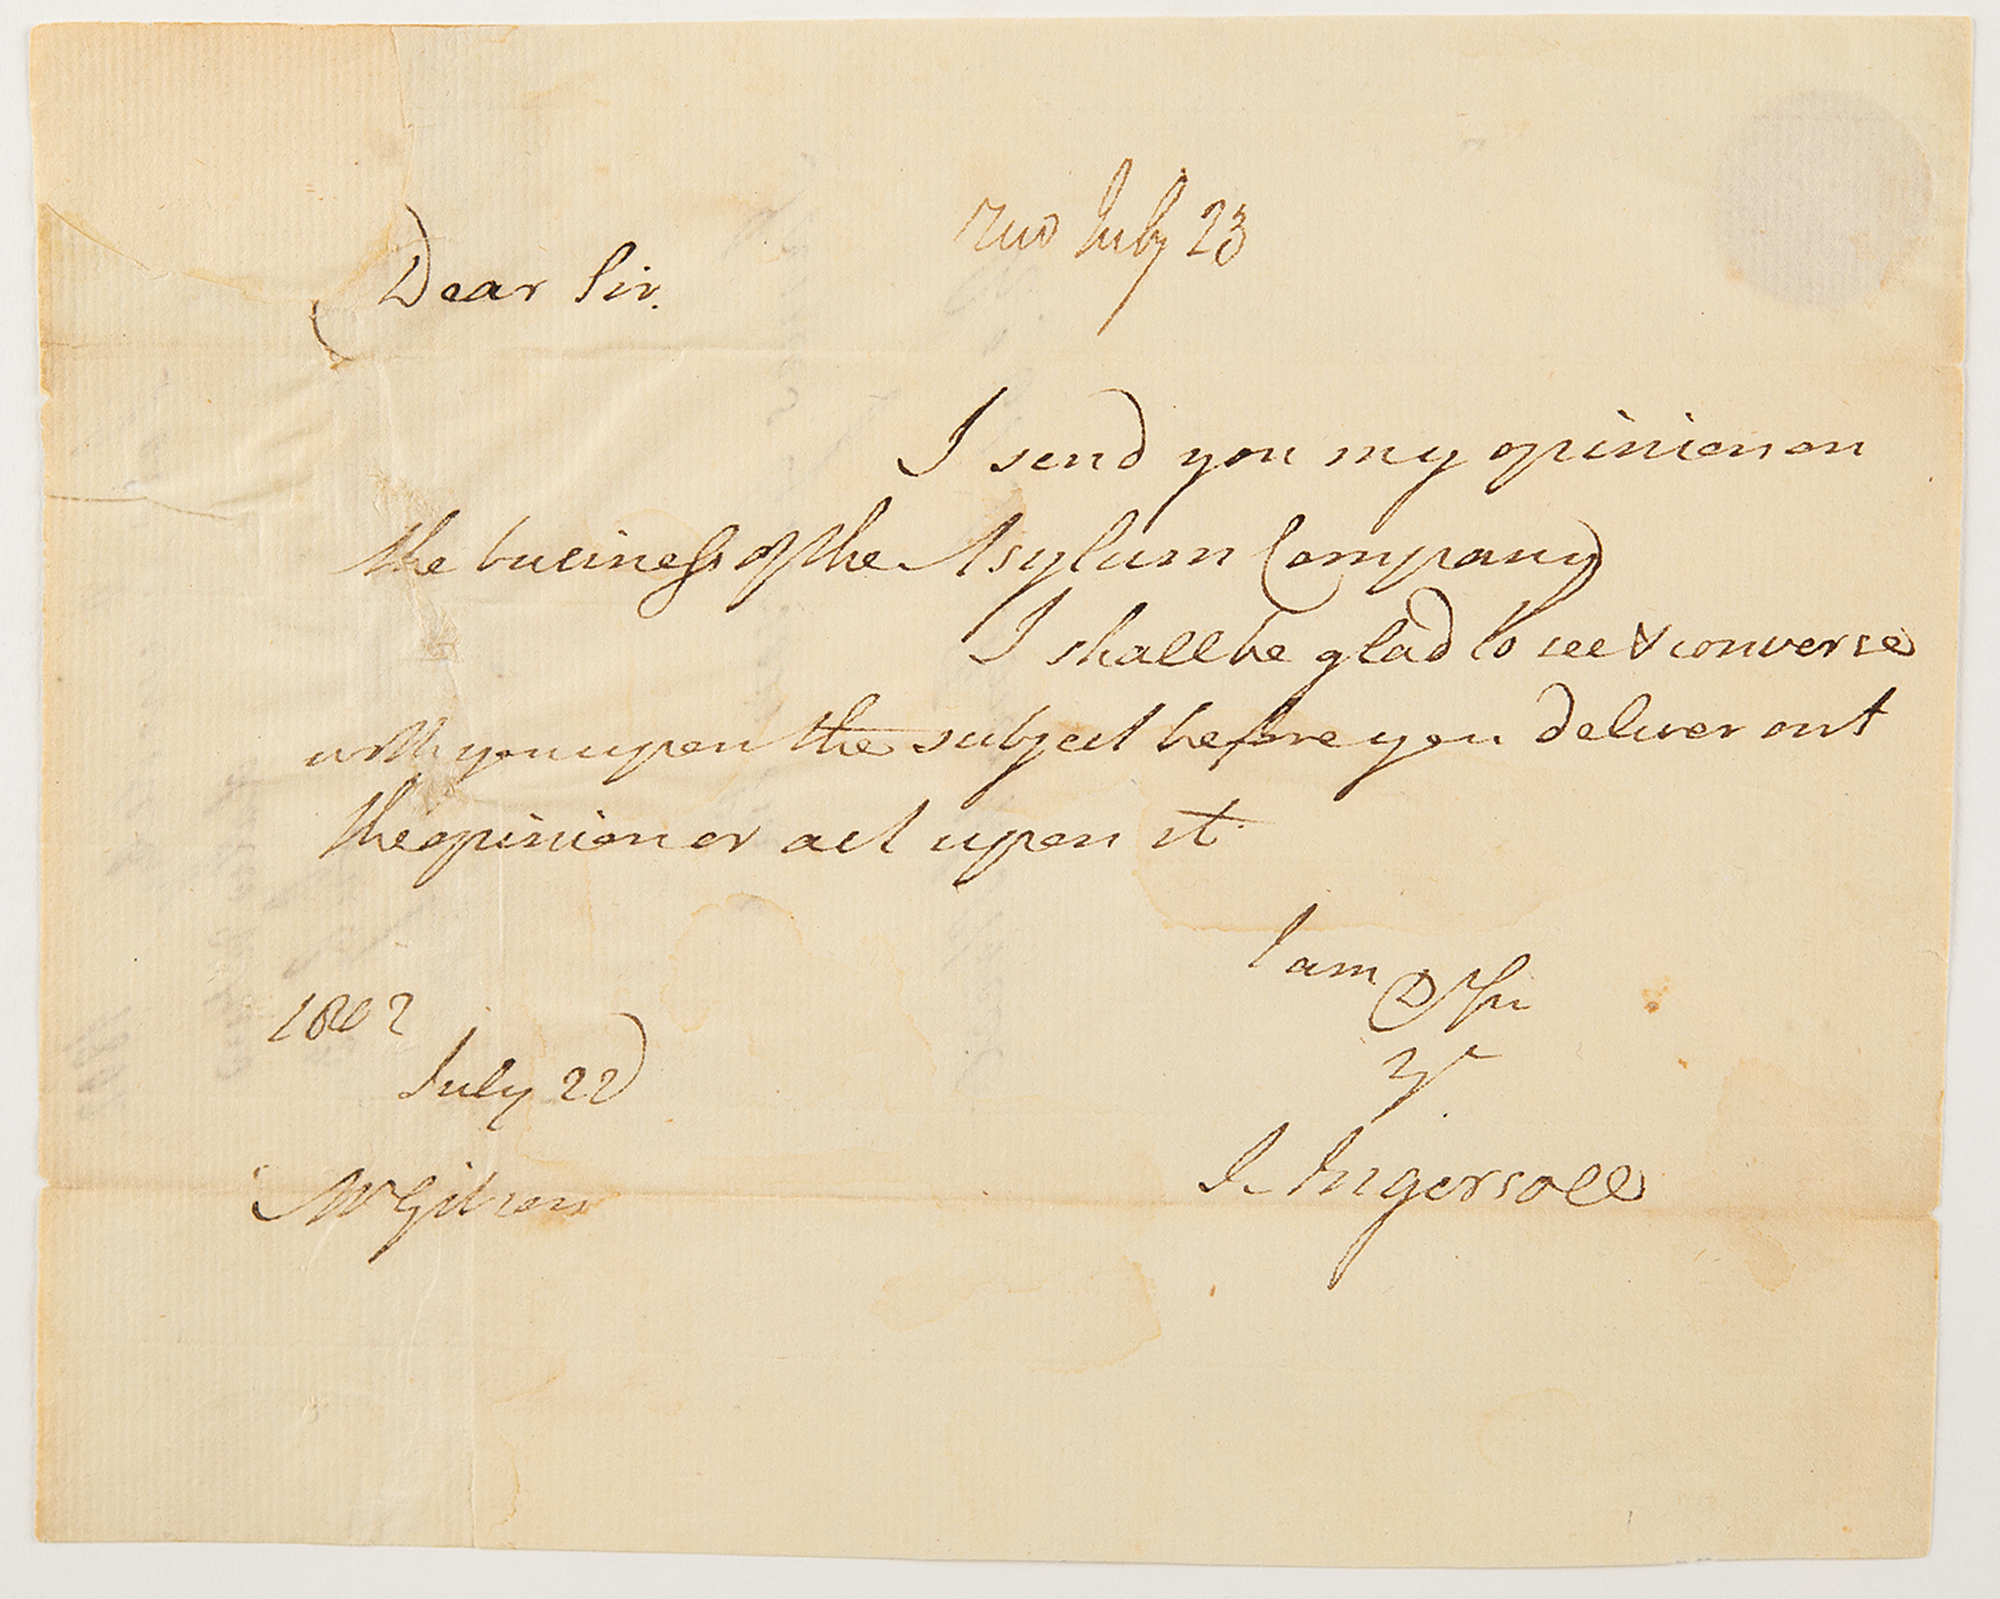 Recd July 23
Dear Sir.
I send you my opinion on
the business of the Asylum Company
I shall be glad to see & converse
with you upon the subject before you deliver out
the opinion or act upon it.
I am D Sir
Yr
1802
July 22d
J. Ingersoll
Mr Gibson